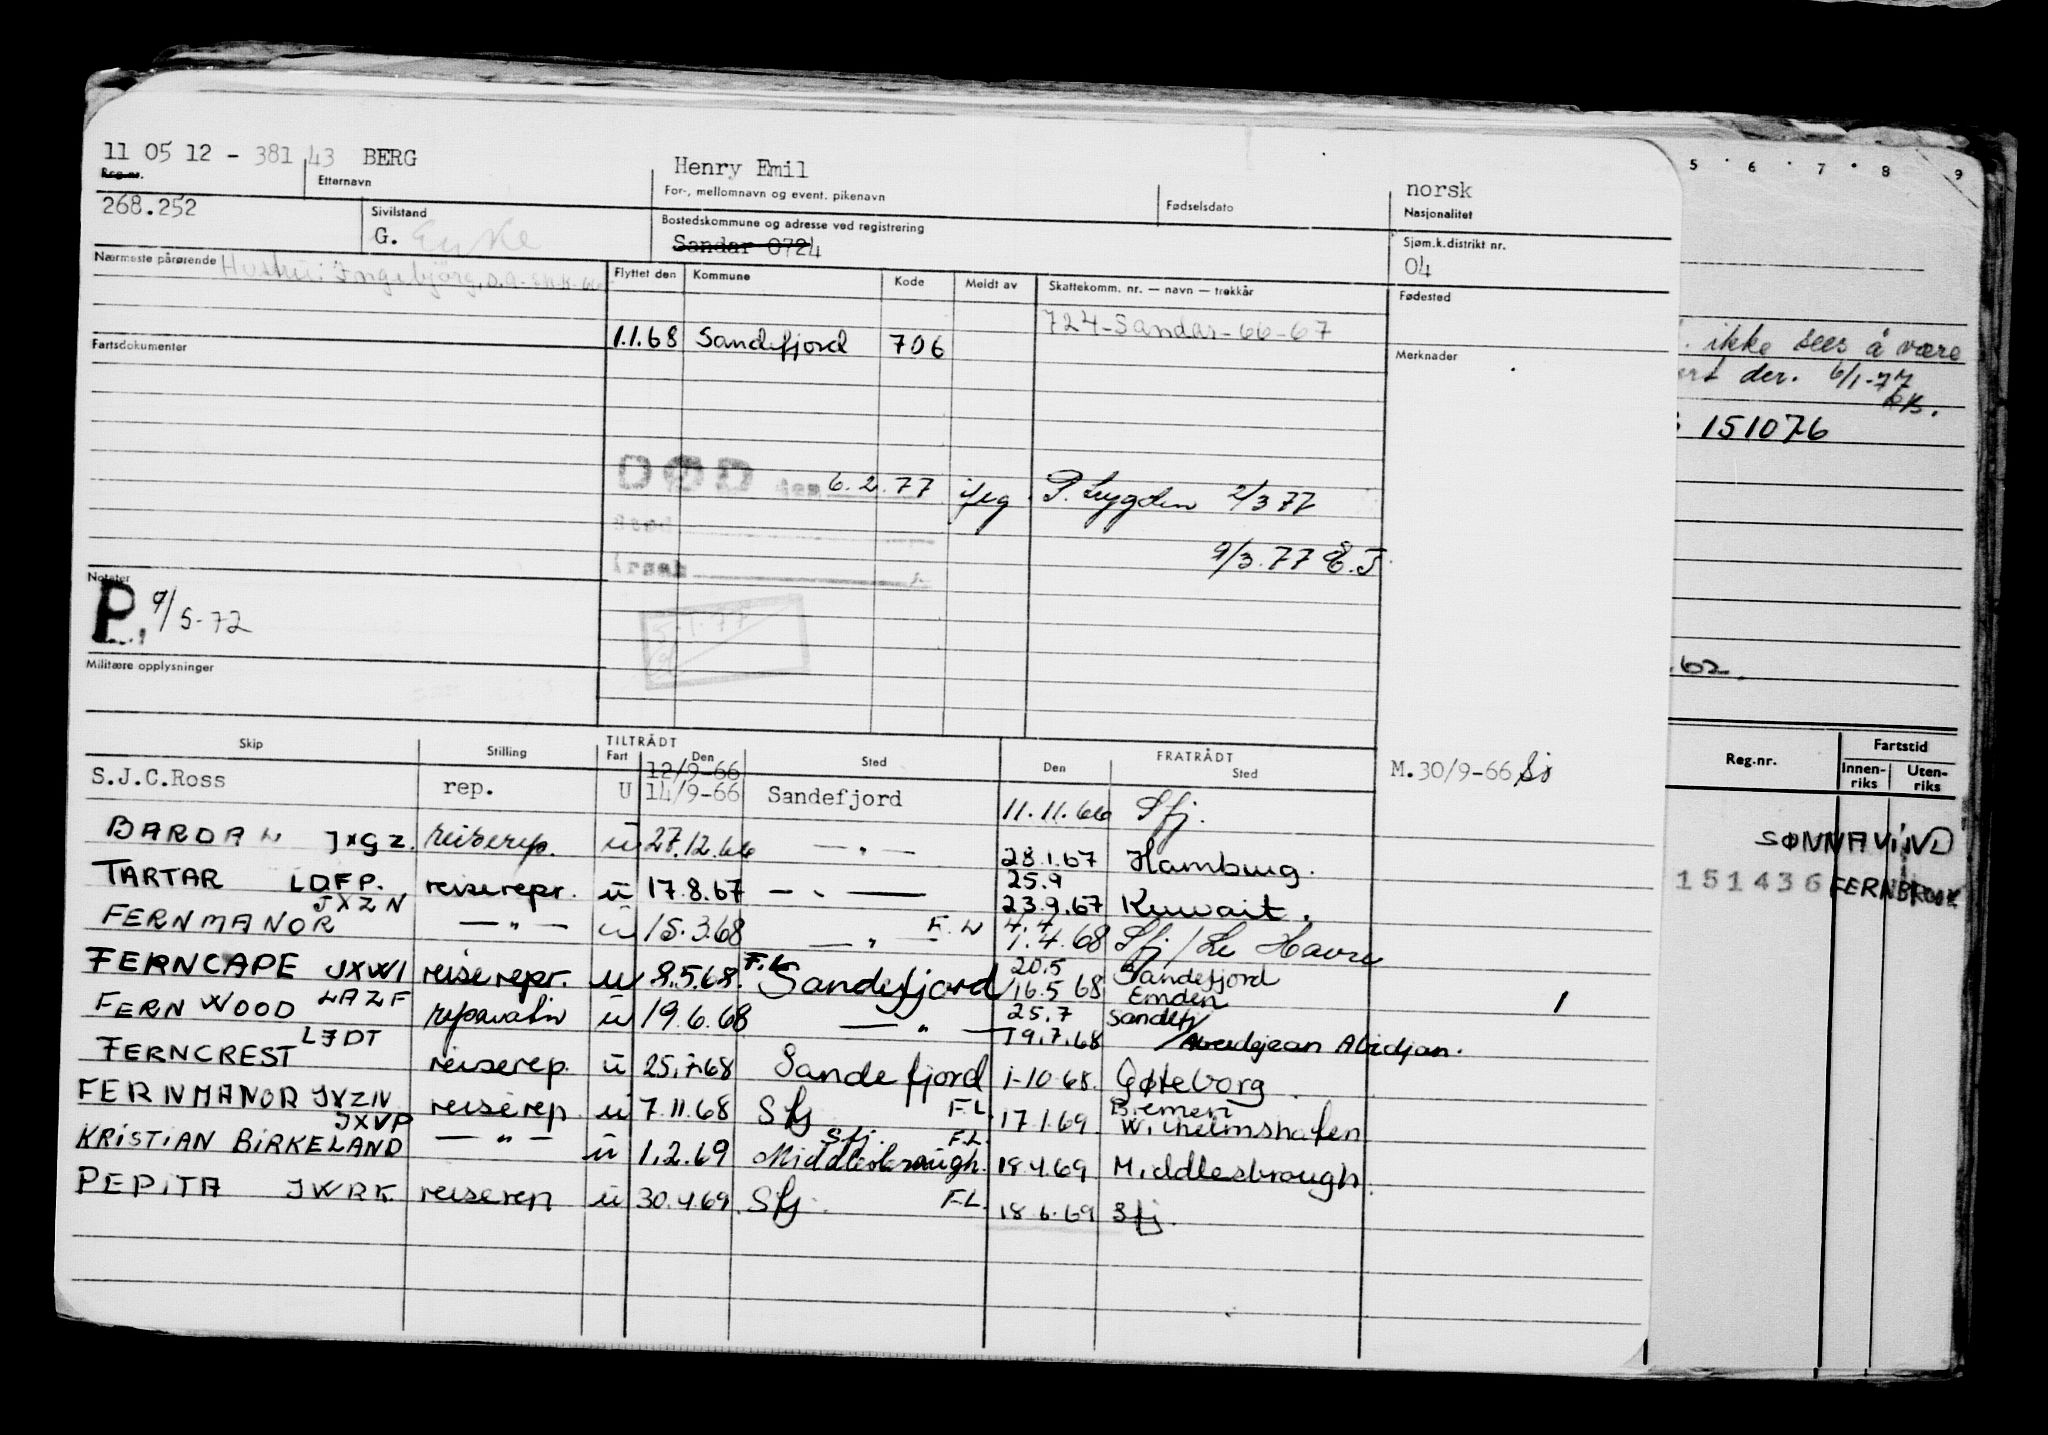 11 05 12 - 381 43 BERG Henry Emil norsk
Reg.nr. Etternavn For-, mellomnavn og event. pikenavn Fødselsdato Nasjonalitet
268.252 Sivilstand G. Enke Bostedskommune og adresse ved registrering Sandar 0724 Sjøm.k.distrikt nr. 04
Nærmeste pårørende Hustru: Ingebjörg, s.a. Flyttet den Kommune Kode Meldt av Skattekomm. nr. — navn — trekkår Fødested
724-Sandar-66-67
Fartsdokumenter 1.1.68 Sandefjord 706 Merknader
DØD den 6.2.77 2/3 77
Sted
Årsak 9/3.77 E.J.
Notater
P. 9/5-72
5.1.77
Militære opplysninger
Skip Stilling TILTRÅDT Fart Den Sted FRATRÅDT Den Sted
12/9-66
S.J.C.Ross rep. U 14/9-66 Sandefjord 11.11.66 Sfj. M.30/9-66
BARDAL JXGZ. reiserep. u 27.12.66 — " — 28.1.67 Hamburg.
25.9
TARTAR LDFP. reiserepr. u 17.8.67 — " — 23.9.67 Kuwait.
JXZN 4.4
FERNMANOR — " — u 15.3.68 — " — 1.4.68 Sfj / Le Havre
20.5 Sandefjord
FERNCAPE JXWI reiserepr. u 8.5.68. F.L. Sandefjord 16.5 68 Emden 1
25.7 Sandefj
FERNWOOD LAZF reparatør u 19.6.68 — " — 19.7.68 / Abidjan.
LJDT
FERNCREST reiserep. u 25.7.68 Sandefjord 1-10 68. Gøteborg.
Bremen
FERNMANOR JXZN reiserep u 7.11.68 Sfj F.L. 17.1.69 Wilhelmshafen
JXVP Sfj. F.L.
KRISTIAN BIRKELAND — " — u 1.2.69 Middlesbrough. 18.4.69 Middlesbrough.
PEPITA JWRK reiserep u 30.4.69. Sfj. F.L. 18.6.69 Sfj.
5 6 7 8 9
ikke sees å være
der. 6/1-77
151076
.62.
Reg.nr. Fartstid
Innenriks Utenriks
SØNNAVIND
151436 FERNBROOK